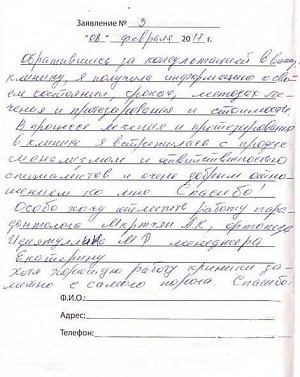 Заявление № 3
"08" февраля 2017 г.
Обратившись за консультацией в вашу
клинику, я получила информацию о сво-
ем состоянии, сроках, методах ле-
чения и протезирования и стоимости.
В процессе лечения и протезирования
в клинике я встретилась с профес-
сионализмом и ответственностью
специалистов и очень добрым отно-
шением ко мне Спасибо!
Особо хочу отметить работу паро-
донтолога Мкртчян А.К., ортопеда
М Р менеджера
Екатерину
хотя хорошую работу клиники за-
метно с самого порога. Спасибо.
Ф.И.О.:
Адрес:
Телефон: